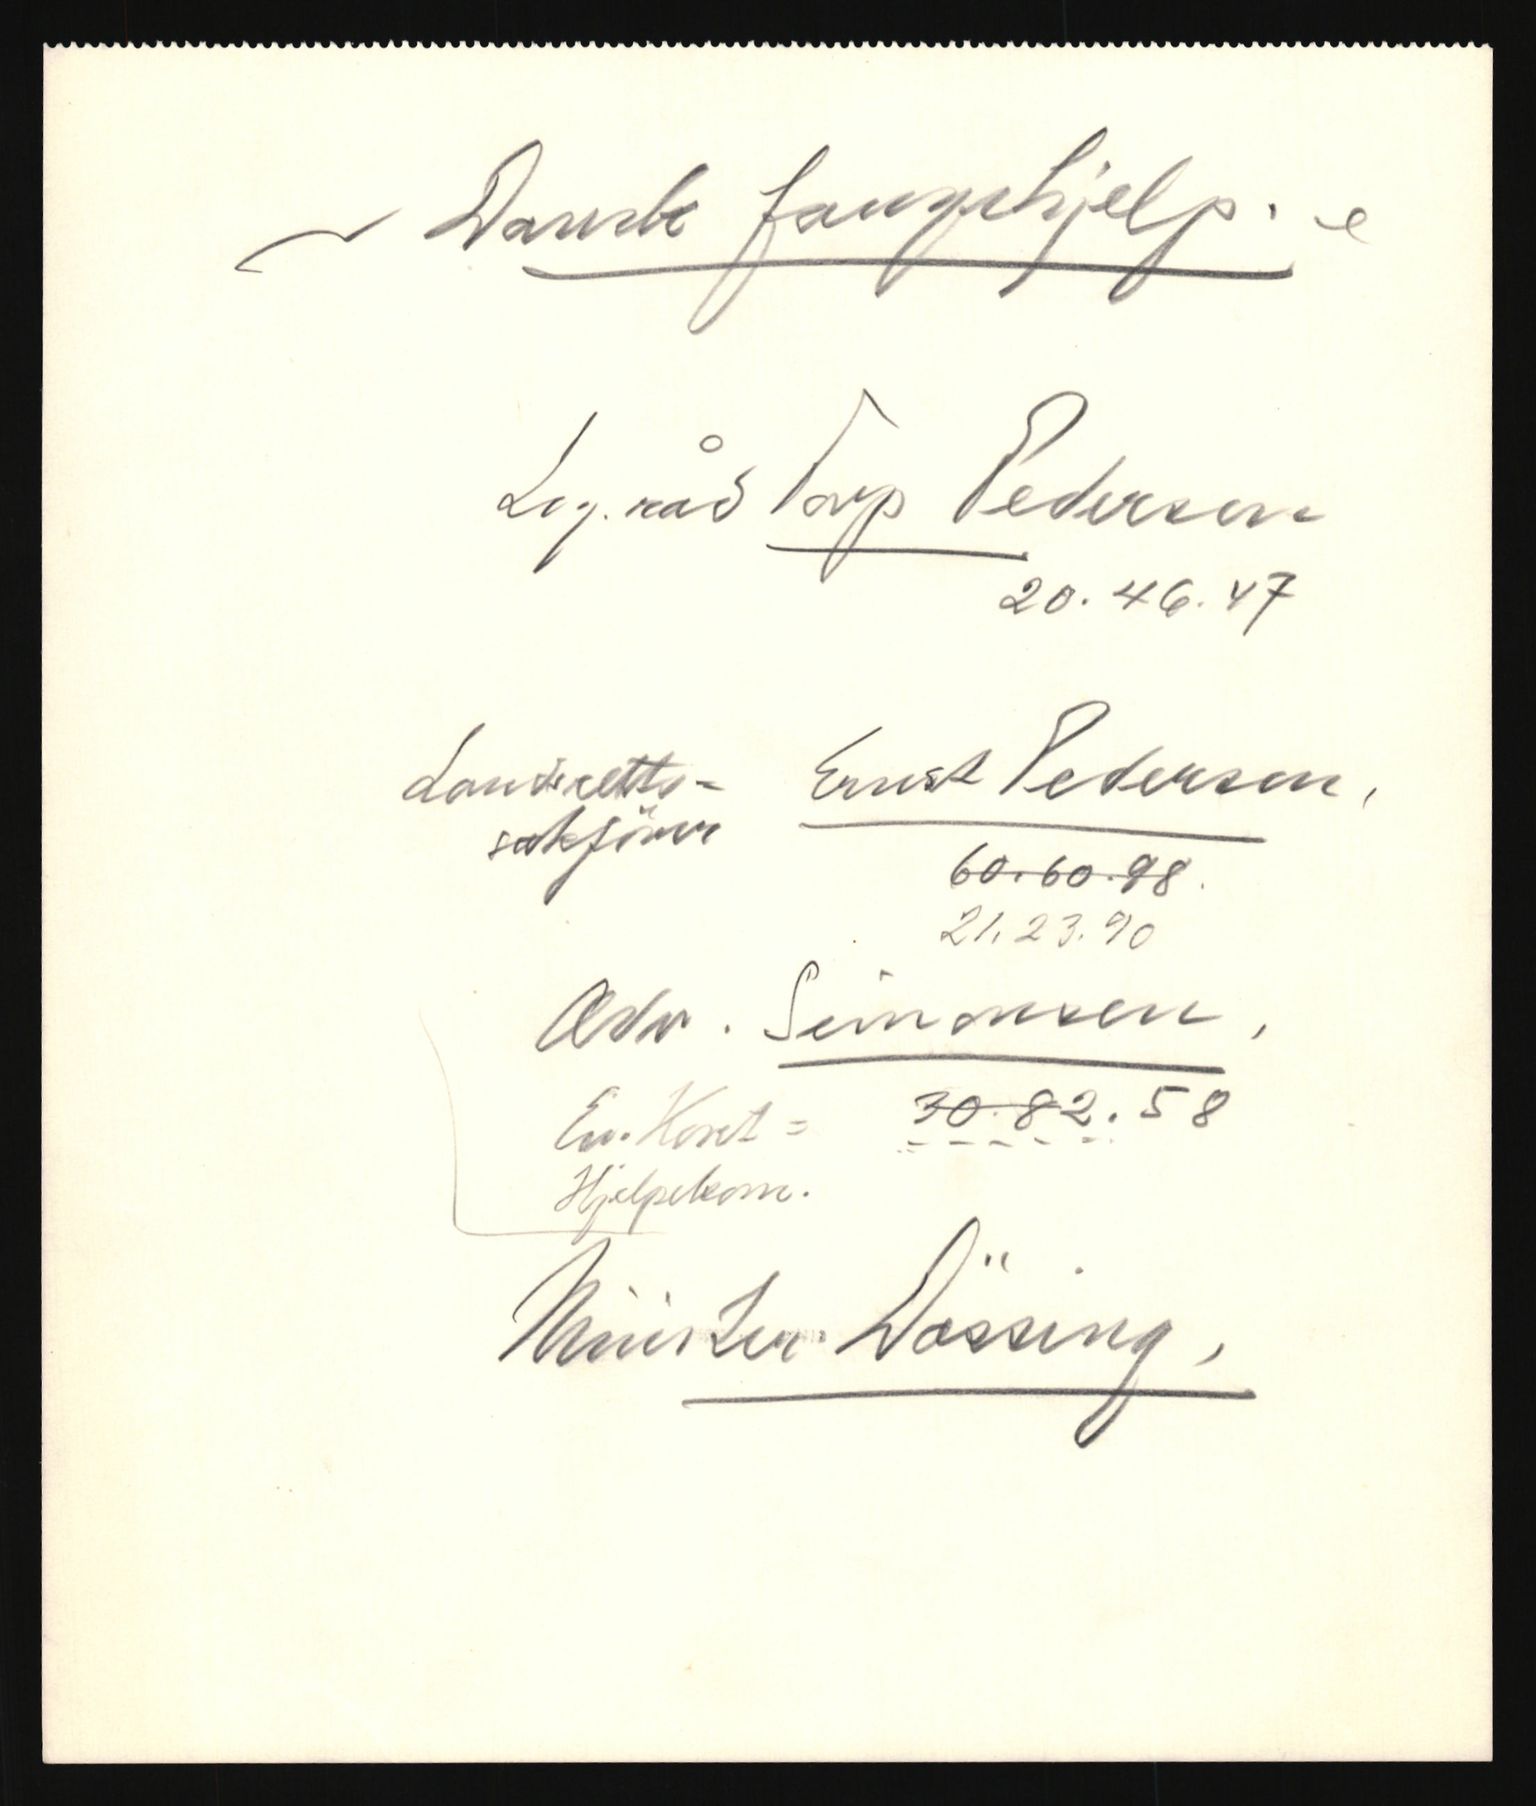 Dansk fangehjelp.
Leg. råd Torp Pedersen
20.46.47
Landsretts= Ernst Pedersen,
sakförer
60.60.98.
21.23.90
Adv. Simonsen,
30.82.58
Hjelpekom.
Minister Dössing,